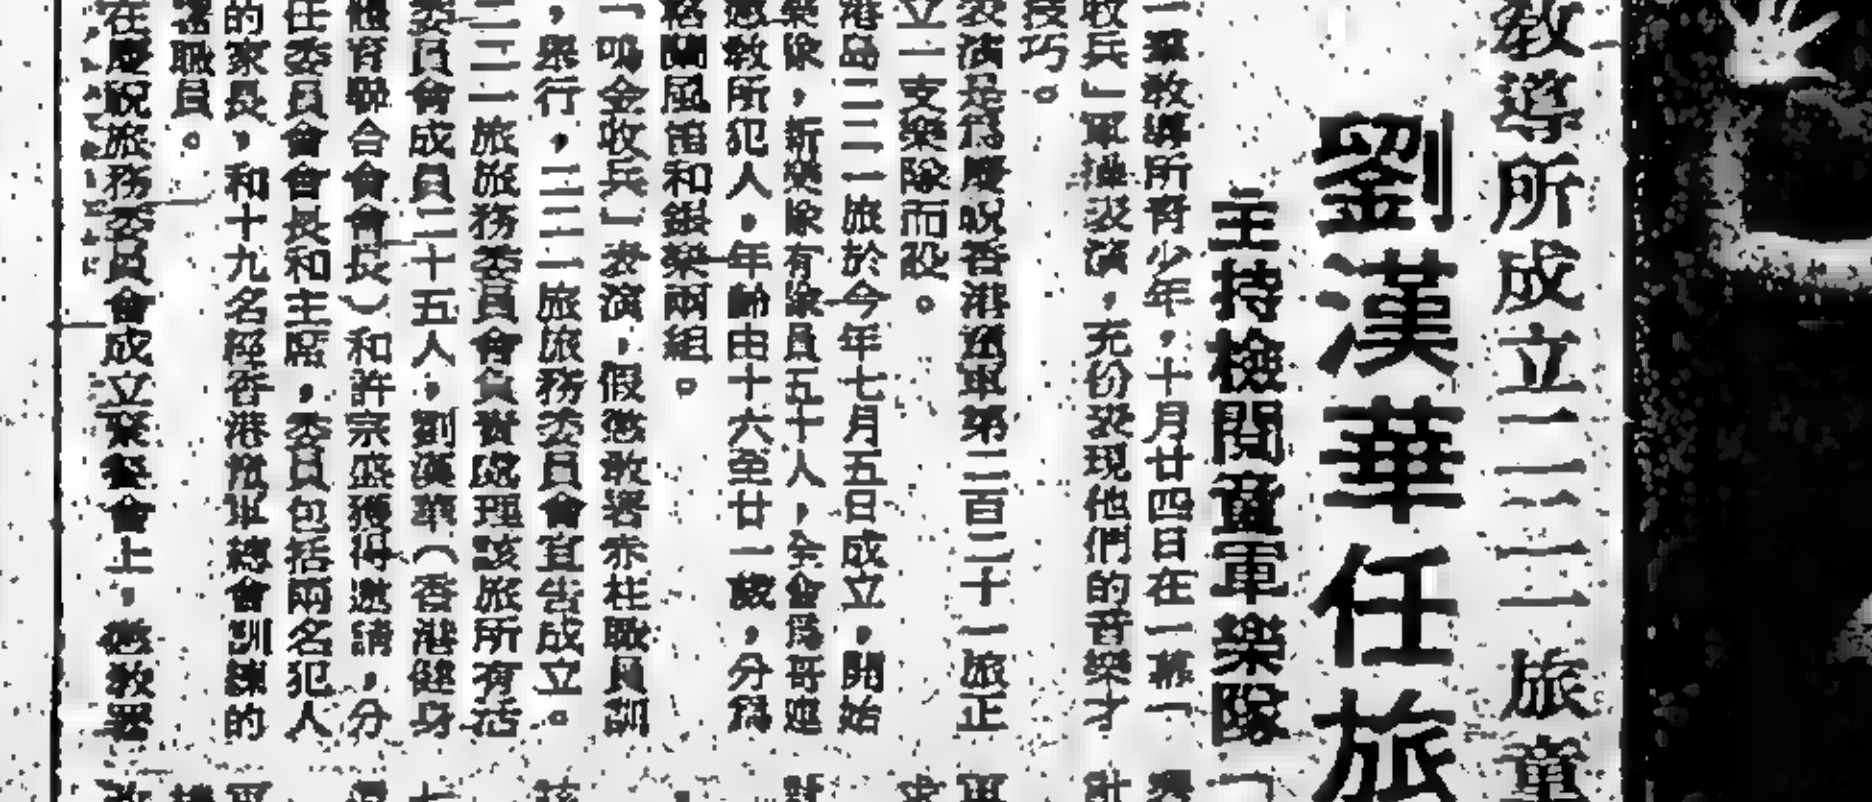 教導所成立二二二一旅童
劉漢華任旅
主持檢閱童軍樂隊「
教導所青少年，十月廿四日在一幕「
收兵」軍操表演，充份表現他們的音樂才
技巧。
表演是為慶祝香港童軍第二百二十一旅正
立一支樂隊而設。
港島二二一旅於今年七月五日成立，開始
樂隊，新樂隊有隊員五十人，全會為哥連
懲教所犯人，年齡由十六至廿一歲，分為
格蘭風笛和銀樂兩組。
「鳴金收兵」表演，假懲教署赤柱職員訓
，舉行，二二一旅旅務委員會宣告成立。
二二一旅旅務委員會負責處理該旅所有活
委員會成員二十五人，劉漢華（香港健身
體育聯合會會長）和許宗盛獲得邀請，分
任委員會會長和主席，委員包括兩名犯人
的家長，和十九名經香港童軍總會訓練的
署職員。
在慶祝旅務委員會成立聚餐會上，懲教署